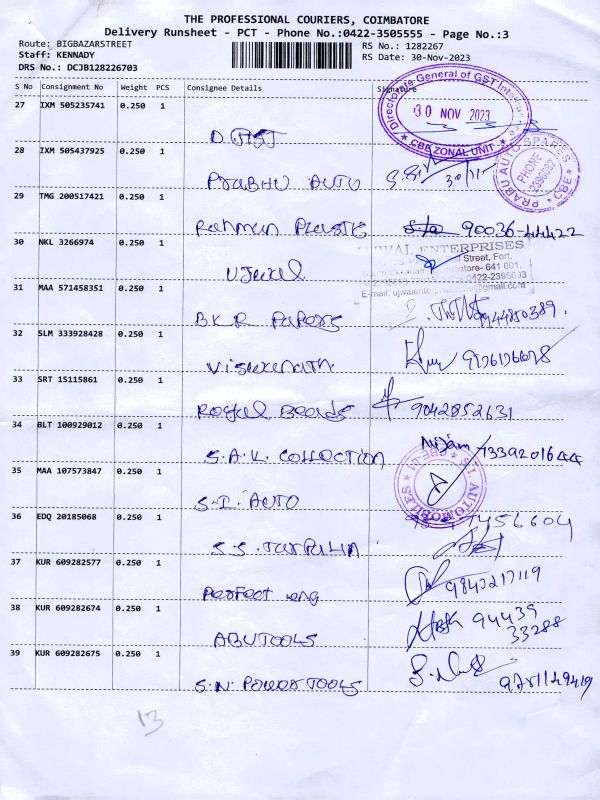 THE PROFESSIONAL COURIERS, COIMBATORE
Delivery Runsheet - PCT - Phone No.:0422-3505555 - Page No.:3
Route: BIGBAZARSTREET
RS No.: 1282267
Staff: KENNADY
RS Date: 30-Nov-2023
DRS No.: DCJB128226703
S No Consignment No Weight PCS Consignee Details Signature
27 IXM 505235741 0.250 1
Directorate General of GST
30 NOV 2023
CBE ZONAL UNIT
28 IXM 505437925 0.250 1
Prabhu Auto 30/11
PRABU AUTO SPARES
PHONE
CBE
29 TMG 200517421 0.250 1
Rahman Plastic 90036-44422
30 NKL 3266974 0.250 1
Ujwal
ENTERPRISES
Street, Fort,
641 001.
E-mail:
31 MAA 571458351 0.250 1
B.K.R Papers 9944850389.
32 SLM 333928428 0.250 1
Viswanath
33 SRT 15115861 0.250 1
Royal Beads 9042852631
34 BLT 100929012 0.250 1
S.A.K. Collection
35 MAA 107573847 0.250 1
S.I. AUTO
S.I AUTOMOBILES
36 EDQ 20185068 0.250 1
37 KUR 609282577 0.250 1
Perfect eng 9843217119
38 KUR 609282674 0.250 1
ABU TOOLS 94439
33288
39 KUR 609282675 0.250 1
S.N. Power Tools
13